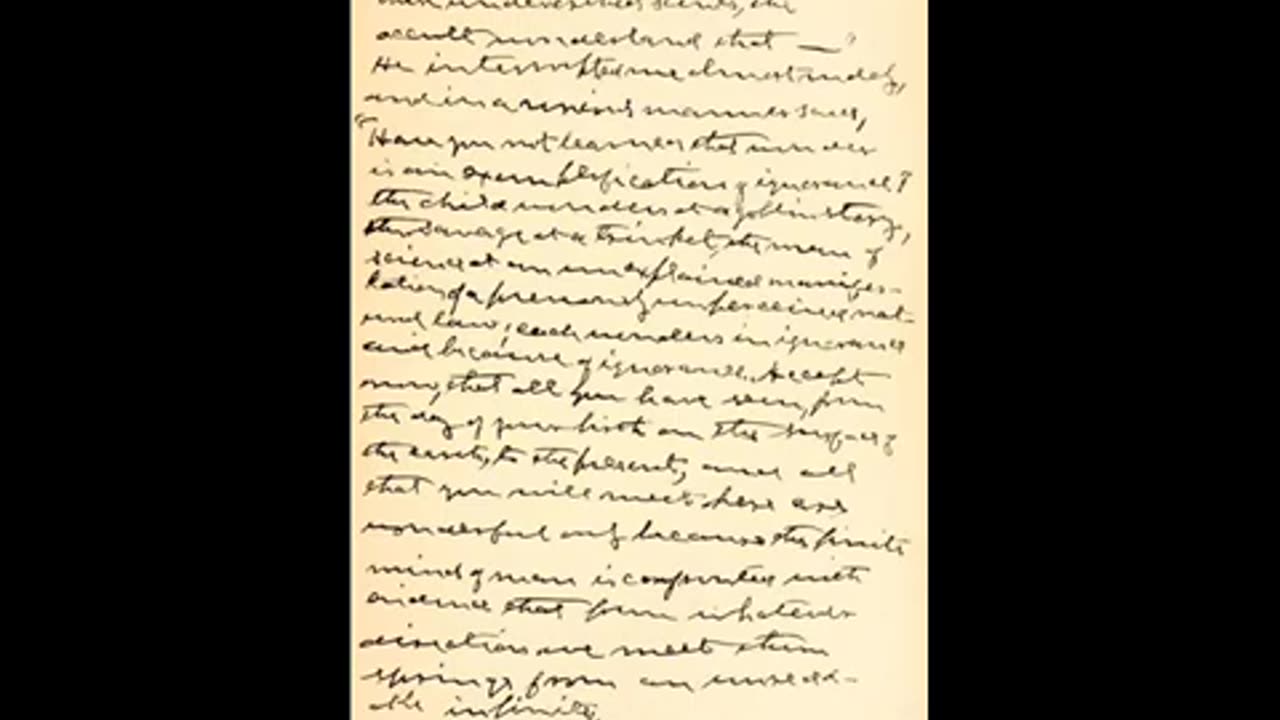 occult wonderland that —"
He interrupted me almost rudely,
and in a serious manner said,
"Have you not learned that wonder
is an exemplification of ignorance?
The child wonders at a goblin story,
the savage at a trinket, the man of
science at an unexplained manifes-
tation of a previously unperceived nat-
ural law; each wonders in ignorance
and because of ignorance. Accept
now, that all you have seen, from
the day of your birth on the surface of
the earth, to the present, and all
that you will meet here are
wonderful only because the finite
mind of man is confronted with
evidence that from whatever
direction we meet them
springs from an unread-
able infinity